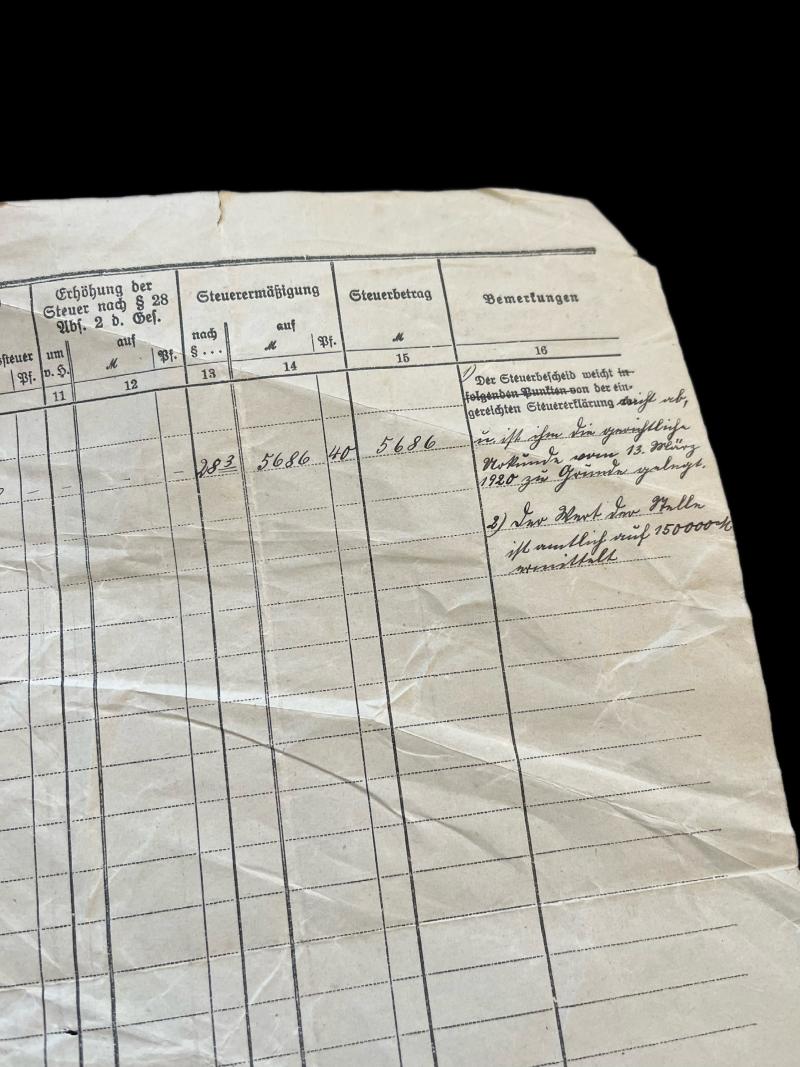 Erhöhung der
Steuer nach § 28
Abs. 2 d. Ges.
Steuerermäßigung
Steuerbetrag
Bemerkungen
steuer
um
v. H.
auf
nach
§ . . .
auf
Pf.
M
Pf.
M
Pf.
M
11
12
13
14
15
16
1) Der Steuerbescheid weicht in
folgenden Punkten von der ein-
gereichten Steuererklärung nicht ab,
u. ist ihm die gerichtliche
Urkunde vom 13. März
1920 zu Grunde gelegt.
– – – 28 3 5686 40 5686
2) Der Wert der Stelle
ist amtlich auf 150000 M
ermittelt